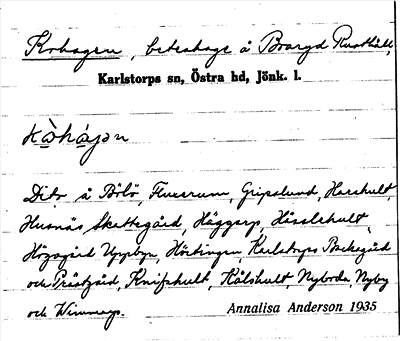 Kohagen, beteshage å Boaryd Rusthåll,
Karlstorps sn, Östra hd, Jönk. l.
Dito å Bölö, Flurarum, Gripslund, Harshult,
Husnäs Skattegård, Häggarp, Hässlehult,
Högagärd Uppbyn, Hörtingen, Karlstorps Backegård
och Prästgård, Knifshult, Kålshult, Nyboda, Nyby
och Wimmarp. Annalisa Anderson 1935